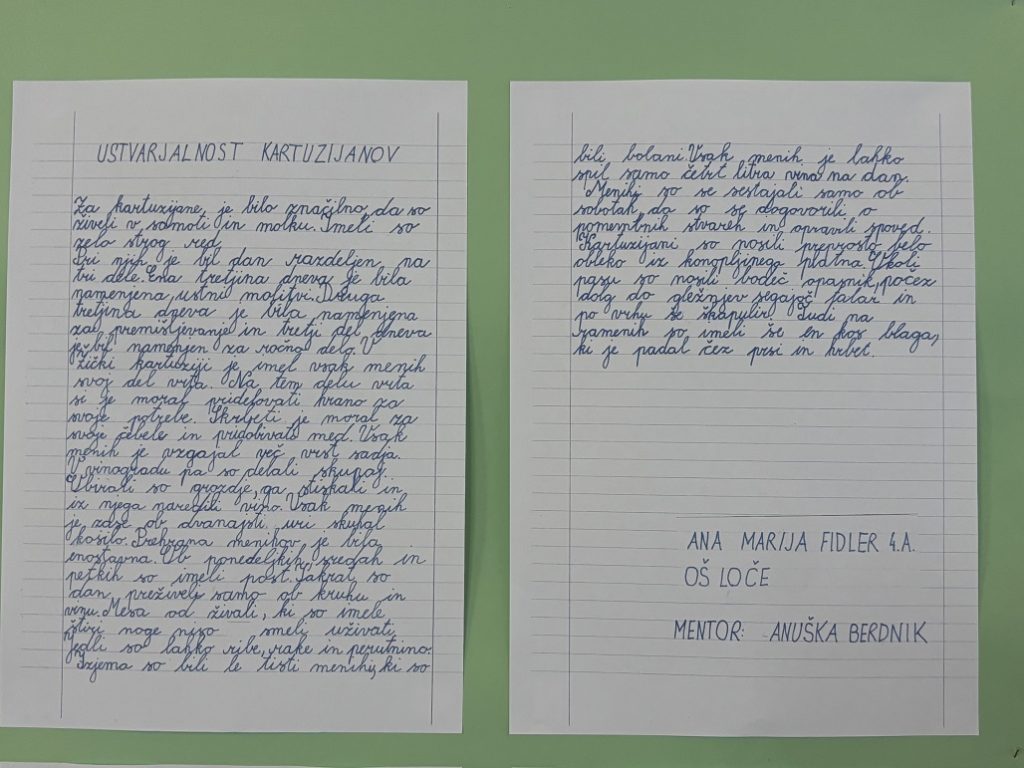 USTVARJALNOST KARTUZIJANOV
Za kartuzijane, je bilo značilno, da so
živeli v samoti in molku. Imeli so
zelo strog red.
Pri njih je bil dan razdeljen na
tri dele. Ena tretjina dneva je bila
namenjena ustni molitvi. Druga
tretjina dneva je bila namenjena
za premišljevanje in tretji del dneva
je bil namenjen za ročno delo. V
Žički kartuziji je imel vsak menih
svoj del vrta. Na tem delu vrta
si je moral pridelovati hrano za
svoje potrebe. Skrbeti je moral za
svoje čebele in pridobivati med. Vsak
menih je vzgajal več vrst sadja.
V vinogradu pa so delali skupaj.
Ubirali so grozdje, ga stiskali in
iz njega naredili vino. Vsak menih
je zase ob dvanajsti uri skuhal
kosilo. Prehrana menihov je bila
enostavna. Ob ponedeljkih, sredah in
petkih so imeli post. Takrat so
dan preživeli samo ob kruhu in
vinu. Mesa od živali, ki so imele
štiri noge niso smeli uživati.
Jedli so lahko ribe, rake in perutnino.
Izjema so bili le tisti menihi, ki so
bili bolani. Vsak menih je lahko
spil samo četrt litra vina na dan.
Menihi so se sestajali samo ob
sobotah da so se dogovorili o
pomembnih stvareh in opravili spoved.
Kartuzijani so nosili preprosto belo
obleko iz konopljinega platna. Okoli
pasu so nosili bodeč opasnik, počez
dolg do gležnjev segajoč talar in
po vrhu še škapulir. Tudi na
ramenih so imeli še en kos blaga,
ki je padal čez prsi in hrbet.
ANA MARIJA FIDLER 4.A.
OŠ LOČE
MENTOR: ANUŠKA BERDNIK